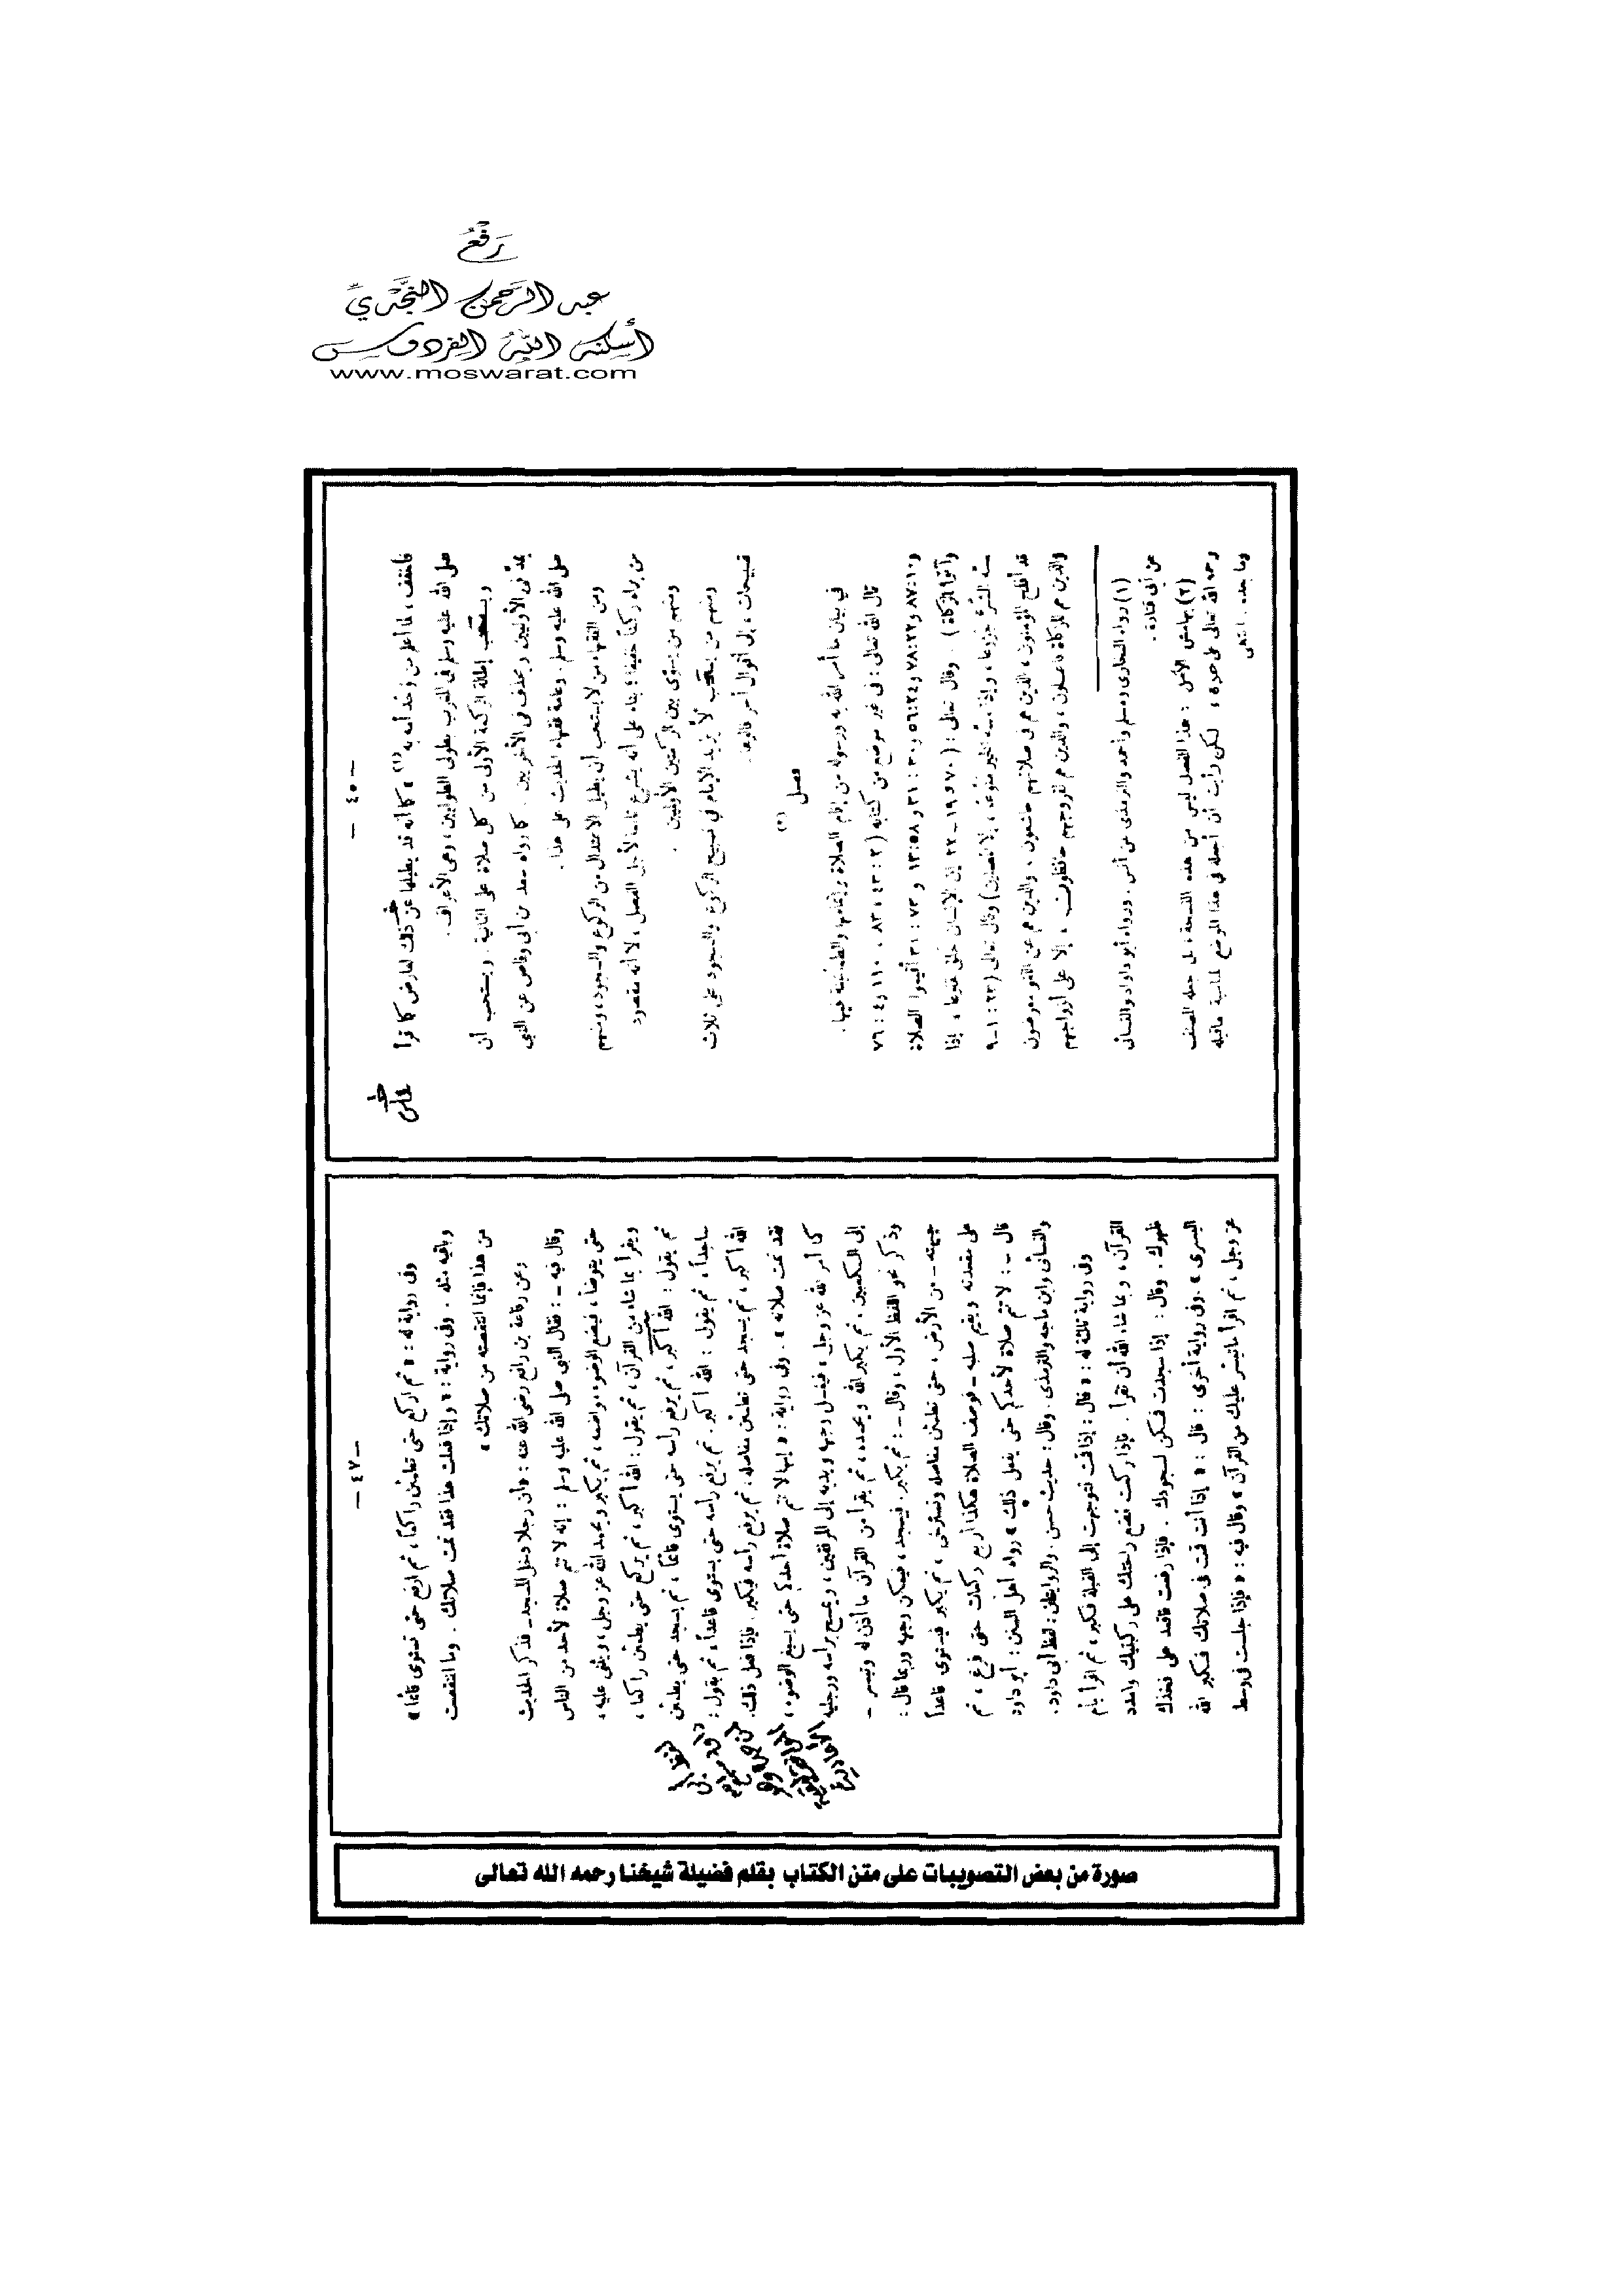 رفع
عبد الرحمن النجدي
أسكنه الله الفردوس
www.moswarat.com
— ٤٥ —
فأخفف، لما أعلم من وجد أمه به (١) » كما أنه قد يطيلها عن ذلك لعارض كما قرأ
صلى الله عليه وسلم فى المغرب بطولى الطوليين، وهى الأعراف.
ويستحب إطالة الركعة الأولى من كل صلاة على الثانية. ويستحب أن
يمد فى الأوليين ويحذف فى الأخريين. كما رواه سعد بن أبى وقاص عن النبى
صلى الله عليه وسلم. وعامة فقهاء الحديث على هذا.
ومن الفقهاء من لا يستحب أن يطيل الاعتدال من الركوع والسجود، ومنهم
من يراه ركنا خفيفا؛ بناء على أنه يشرع تابعا لأجل الفصل، لا أنه مقصود
ومنهم من يسوى بين الركعتين الأوليين.
ومنهم من يستحب لا يزيد الإمام في تسبيح الركوع والسجود على ثلاث
تسبيحات، إلى أقوال أخر قالوها.
فصل (٢)
في بيان ما أمر الله به ورسوله من إقام الصلاة وإتمامها والطمأنينة فيها.
قال الله تعالى: فى غير موضع من كتابه (٢ : ٤٣، ٨٣، ١١٠ و٤ : ٧٦
و١٠:٨٧ و٢٢:٧٨ و٢٤:٥٦ و٣٠:٣١ و٥٨:١٣ و٧٣:٣١ أقيموا الصلاة
وآتوا الزكاة). وقال تعالى: (٧٠ : ١٩ – ٢٢ إن الإنسان خلق هلوعا، إذا
مسه الشر جزوعا، وإذا مسه الخير منوعا، إلا المصلين) وقال تعالى (٢٣ : ١ – ٩
قد أفلح المؤمنون، الذين هم فى صلاتهم خاشعون. والذين هم عن اللغو معرضون
والذين هم للزكاة فاعلون، والذين هم لفروجهم حافظون، إلا على أزواجهم
(١) رواه البخارى ومسلم وأحمد والترمذى عن أنس. ورواه أبو داود والنسائى
عن أبى قتادة.
(٢) بهامش الأصل: هذا الفصل ليس من هذه النسخة، بل جعله المصنف
رحمه الله تعالى على حدة، لكن رأيت أن أجعله في هذا الموضع لمناسبة ما قبله
وما بعده. انتهى
— ٤٧ —
وفى رواية له: « ثم اركع حتى تطمئن راكعا، ثم ارفع حتى تستوى قائما »
وباقيه مثله. وفى رواية: « وإذا فعلت هذا فقد تمت صلاتك. وما انتقصت
من هذا فإنما انتقصته من صلاتك »
وعن رفاعة بن رافع رضى الله عنه: « أن رجلا دخل المسجد – فذكر الحديث
وقال فيه – : فقال النبى صلى الله عليه وسلم: إنه لا تتم صلاة لأحد من الناس
حتى يتوضأ، فيضع الوضوء مواضعه، ثم يكبر ويحمد الله عز وجل، ويثنى عليه،
ويقرأ بما شاء من القرآن، ثم يقول: الله أكبر، ثم يركع حتى يطمئن راكعا،
ثم يقول: الله أكبر، ثم يرفع رأسه حتى يستوى قائما، ثم يسجد حتى يطمئن
ساجدا، ثم يقول: الله أكبر. ثم يرفع رأسه حتى يستوى قاعدا، ثم يقول:
الله أكبر، ثم يسجد حتى تطمئن مفاصله، ثم يرفع رأسه فيكبر. فإذا فعل ذلك
فقد تمت صلاته ». وفى رواية: « إنها لا تتم صلاة أحدكم حتى يسبغ الوضوء،
كما أمر الله عز وجل، فيغسل وجهه ويديه إلى المرفقين، ويمسح برأسه ورجليه
إلى الكعبين. ثم يكبر الله ويحمده، ثم يقرأ من القرآن ما أذن له وتيسر –
وذكر نحو اللفظ الأول، وقال – : ثم يكبر. فيسجد، فيمكن وجهه وربما قال:
جبهته – من الأرض، حتى تطمئن مفاصله وتسترخى، ثم يكبر فيستوى قاعدا
على مقعدته ويقيم صلبه – فوصف الصلاة هكذا أربع ركعات حتى فرغ، ثم
قال – : لا تتم صلاة لأحدكم حتى يفعل ذلك » رواه أهل السنن: أبو داود
والنسائى وابن ماجه والترمذى. وقال: حديث حسن. والروايتان: لفظ أبى داود.
وفى رواية ثالثة له: « قال: إذا قمت فتوجهت إلى القبلة فكبر، ثم اقرأ بأم
القرآن، وبما شاء الله أن تقرأ. فإذا ركعت فضع راحتك على ركبتيك وامدد
ظهرك. وقال: إذا سجدت فمكن لسجودك. فإذا رفعت فاقعد على فخذك
اليسرى ». وفى رواية أخرى: قال: « إذا أنت قمت فى صلاتك فكبر الله
عز وجل، ثم اقرأ ما تيسر عليك من القرآن » وقال فيه: « فإذا جلست فى وسط
صورة من بعض التصويبات على متن الكتاب بقلم فضيلة شيخنا رحمه الله تعالى